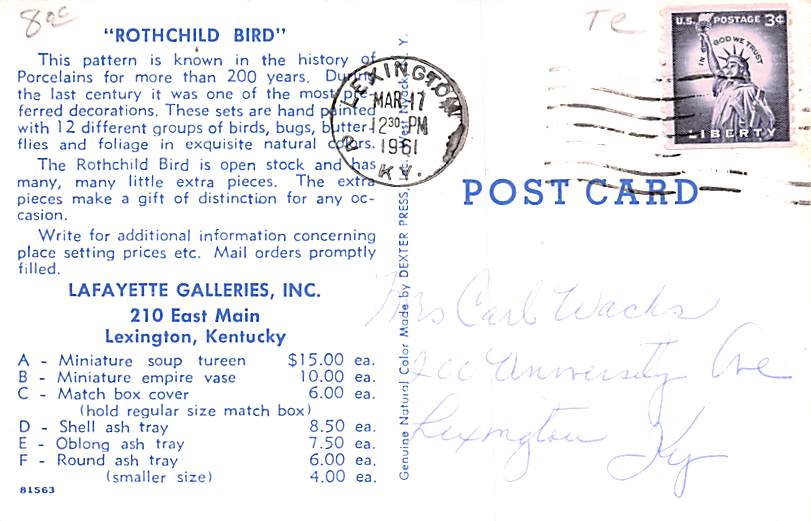 80c
"ROTHCHILD BIRD"
This pattern is known in the history of
Porcelains for more than 200 years. During
the last century it was one of the most pre-
ferred decorations. These sets are hand painted
with 12 different groups of birds, bugs, butter-
flies and foliage in exquisite natural colors.
The Rothchild Bird is open stock and has
many, many little extra pieces. The extra
pieces make a gift of distinction for any oc-
casion.
Write for additional information concerning
place setting prices etc. Mail orders promptly
filled.
LAFAYETTE GALLERIES, INC.
210 East Main
Lexington, Kentucky
A - Miniature soup tureen $15.00 ea.
B - Miniature empire vase 10.00 ea.
C - Match box cover 6.00 ea.
(hold regular size match box)
D - Shell ash tray 8.50 ea.
E - Oblong ash tray 7.50 ea.
F - Round ash tray 6.00 ea.
(smaller size) 4.00 ea.
81563
Genuine Natural Color Made by DEXTER PRESS West Nyack, N. Y.
LEXINGTON
MAR 17
12 30 PM
1961
KY.
U.S. POSTAGE 3¢
IN GOD WE TRUST
LIBERTY
POST CARD
Mrs Carl Wachs
200 University Ave
Lexington Ky